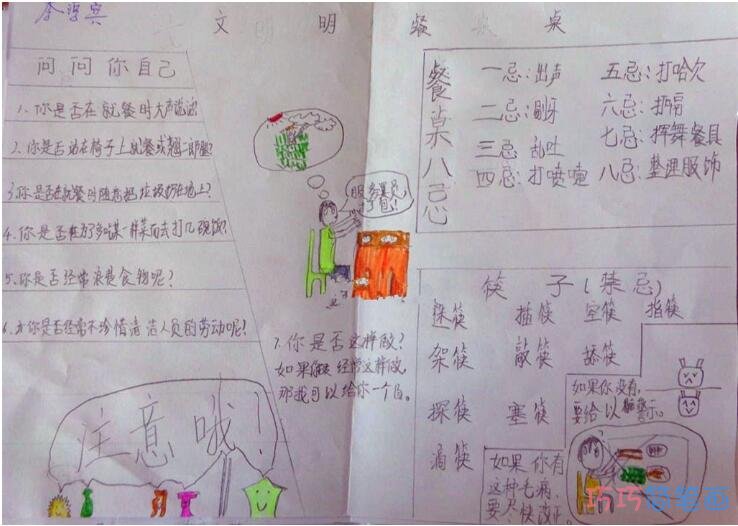 文明餐桌
问问你自己
1、你是否在就餐时大声说话?
2、你是否站在椅子上就餐或翘二郎腿?
3、你是否在就餐时随意把垃圾扔在地上?
4、你是否在为了多吃某一样菜而去打几碗饭?
5、你是否经常浪费食物呢?
6、你是否经常不珍惜清洁人员的劳动呢?
注意哦!
服务员,
打包!
7、你是否这样做?
如果你经常这样做,
那我可以给你一个
餐桌八忌
一忌:出声
二忌:剔牙
三忌:乱吐
四忌:打喷嚏
五忌:打哈欠
六忌:打嗝
七忌:挥舞餐具
八忌:整理服饰
筷子(禁忌)
迷筷 插筷 空筷 指筷
架筷 敲筷 舔筷
探筷 塞筷
滴筷
如果你有
这种毛病,
要尽快改正
如果你没有,
要给以 示。
巧巧